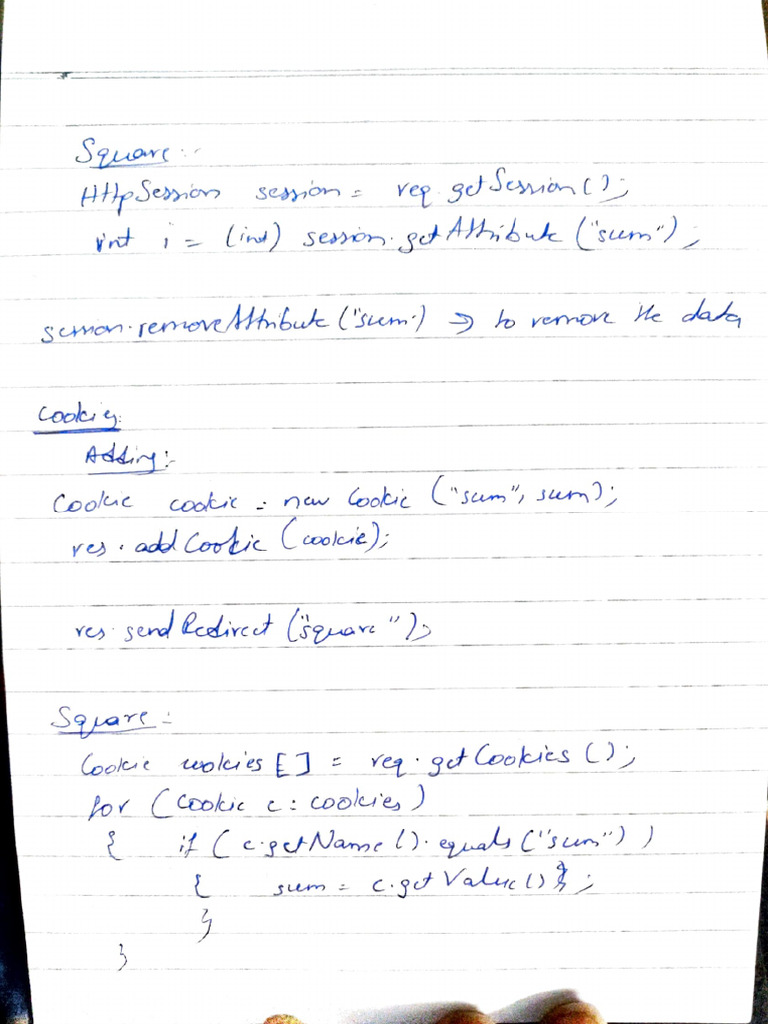 Square:-
HttpSession session = req.getSession();
int i = (int) session.getAttribute ("sum");
session.removeAttribute ("sum") => to remove the data
Cookies
Adding:-
Cookie cookie = new Cookie ("sum", sum);
res.addCookie (cookie);
res.sendRedirect ("square");
Square:-
Cookie cookies [] = req.getCookies ();
for (Cookie c : cookies)
{ if (c.getName().equals("sum"))
{ sum = c.getValue();
}
}